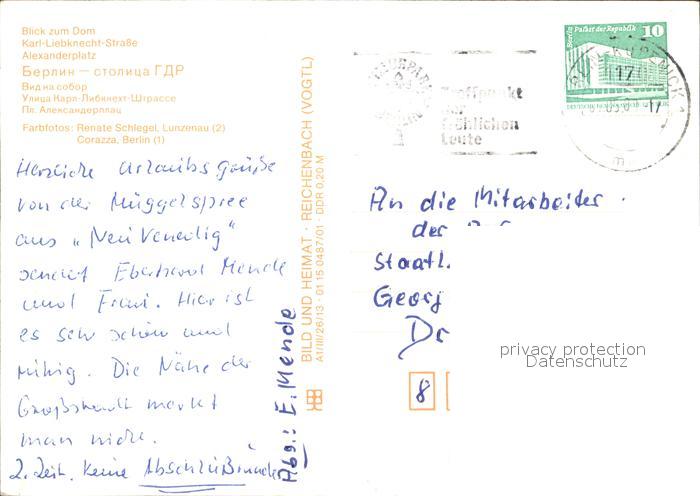 Blick zum Dom
Karl-Liebknecht-Straße
Alexanderplatz
Берлин — столица ГДР
Вид на собор
Улица Карл-Либкнехт-Штрассе
Пл. Александерплац
Farbfotos: Renate Schlegel, Lunzenau (2)
Corazza, Berlin (1)
Herzliche Urlaubsgrüße
von der Müggelspree
aus „Neu Venedig"
sendet Eberhard Mende
und Frau. Hier ist
es sehr schön und
ruhig. Die Nähe der
Großstadt merkt
man nicht.
z. Zeit. keine Abschlüßrunde
Abs.: E. Mende
BILD UND HEIMAT · REICHENBACH (VOGTL)
A1/III/26/13 · 01 15 0487/01 · DDR 0,20 M
Treffpunkt
der
fröhlichen
Leute
Berlin Palast der Republik 10
17
An die Mitarbeiter
der
Staatl.
Georg
Dr
8
privacy protection
Datenschutz